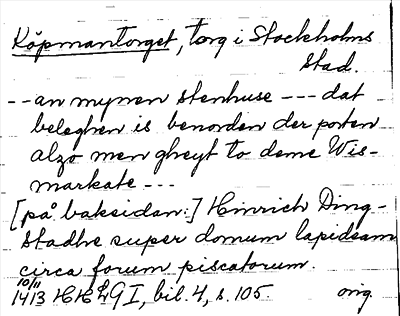 Köpmantorget, torg i Stockholms
stad.
-- an mynen stenhuse --- dat
beleghen is benorden der porten
alzo men gheyt to deme Wis-
markate ---
[på baksidan:] Hinrich Ding-
stadhe super domum lapideam
circa forum piscatorum.
10/11
1413 HHLG I, bil. 4, s. 105. orig.